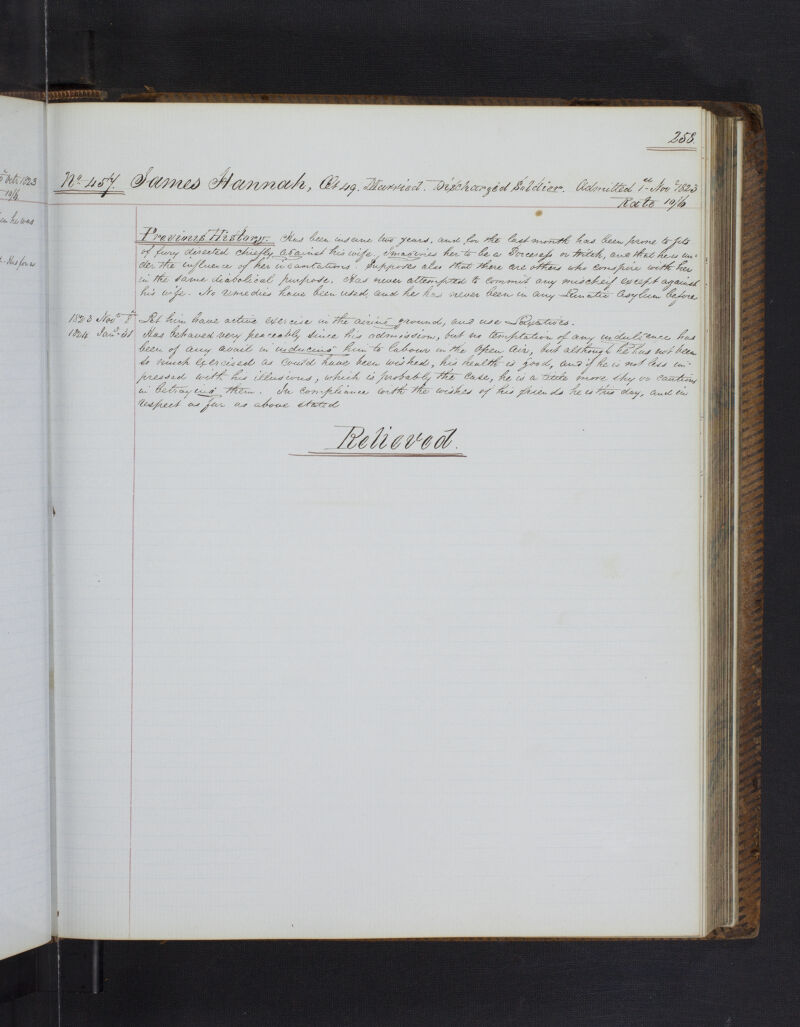 258.
No. 457. James Hannah, Æt 49. Married. Discharged Soldier. Admitted 1st Novr 1823
Rate 10/6
Previous History. Has been insane two years, and for the last month has been prone to fits
of fury directed chiefly against his wife, imagines her to be a Sorceress or Witch, and that he is un-
der the influence of her incantations. Supposes also that there are others who conspire with her
in the same diabolical purpose. Has never attempted to commit any mischief except against
his wife. No remedies have been used, and he has never been in any Lunatic Asylum before
1823 Novr 8 Let him have active exercise in the airing ground, and use Laxatives.
1824 Jany 31 Has behaved very peaceably since his admission, but no temptation of any indulgence has
been of any avail in inducing him to labour in the open air, but although he has not been
so much exercised as could have been wished, his health is good, and if he is not less im-
pressed with his illusions, which is probably the case, he is a little more shy or cautious
in betraying them. In compliance with the wishes of his friends he is this day, and in
respect as far as above stated
Relieved.
1823
10/6
he was